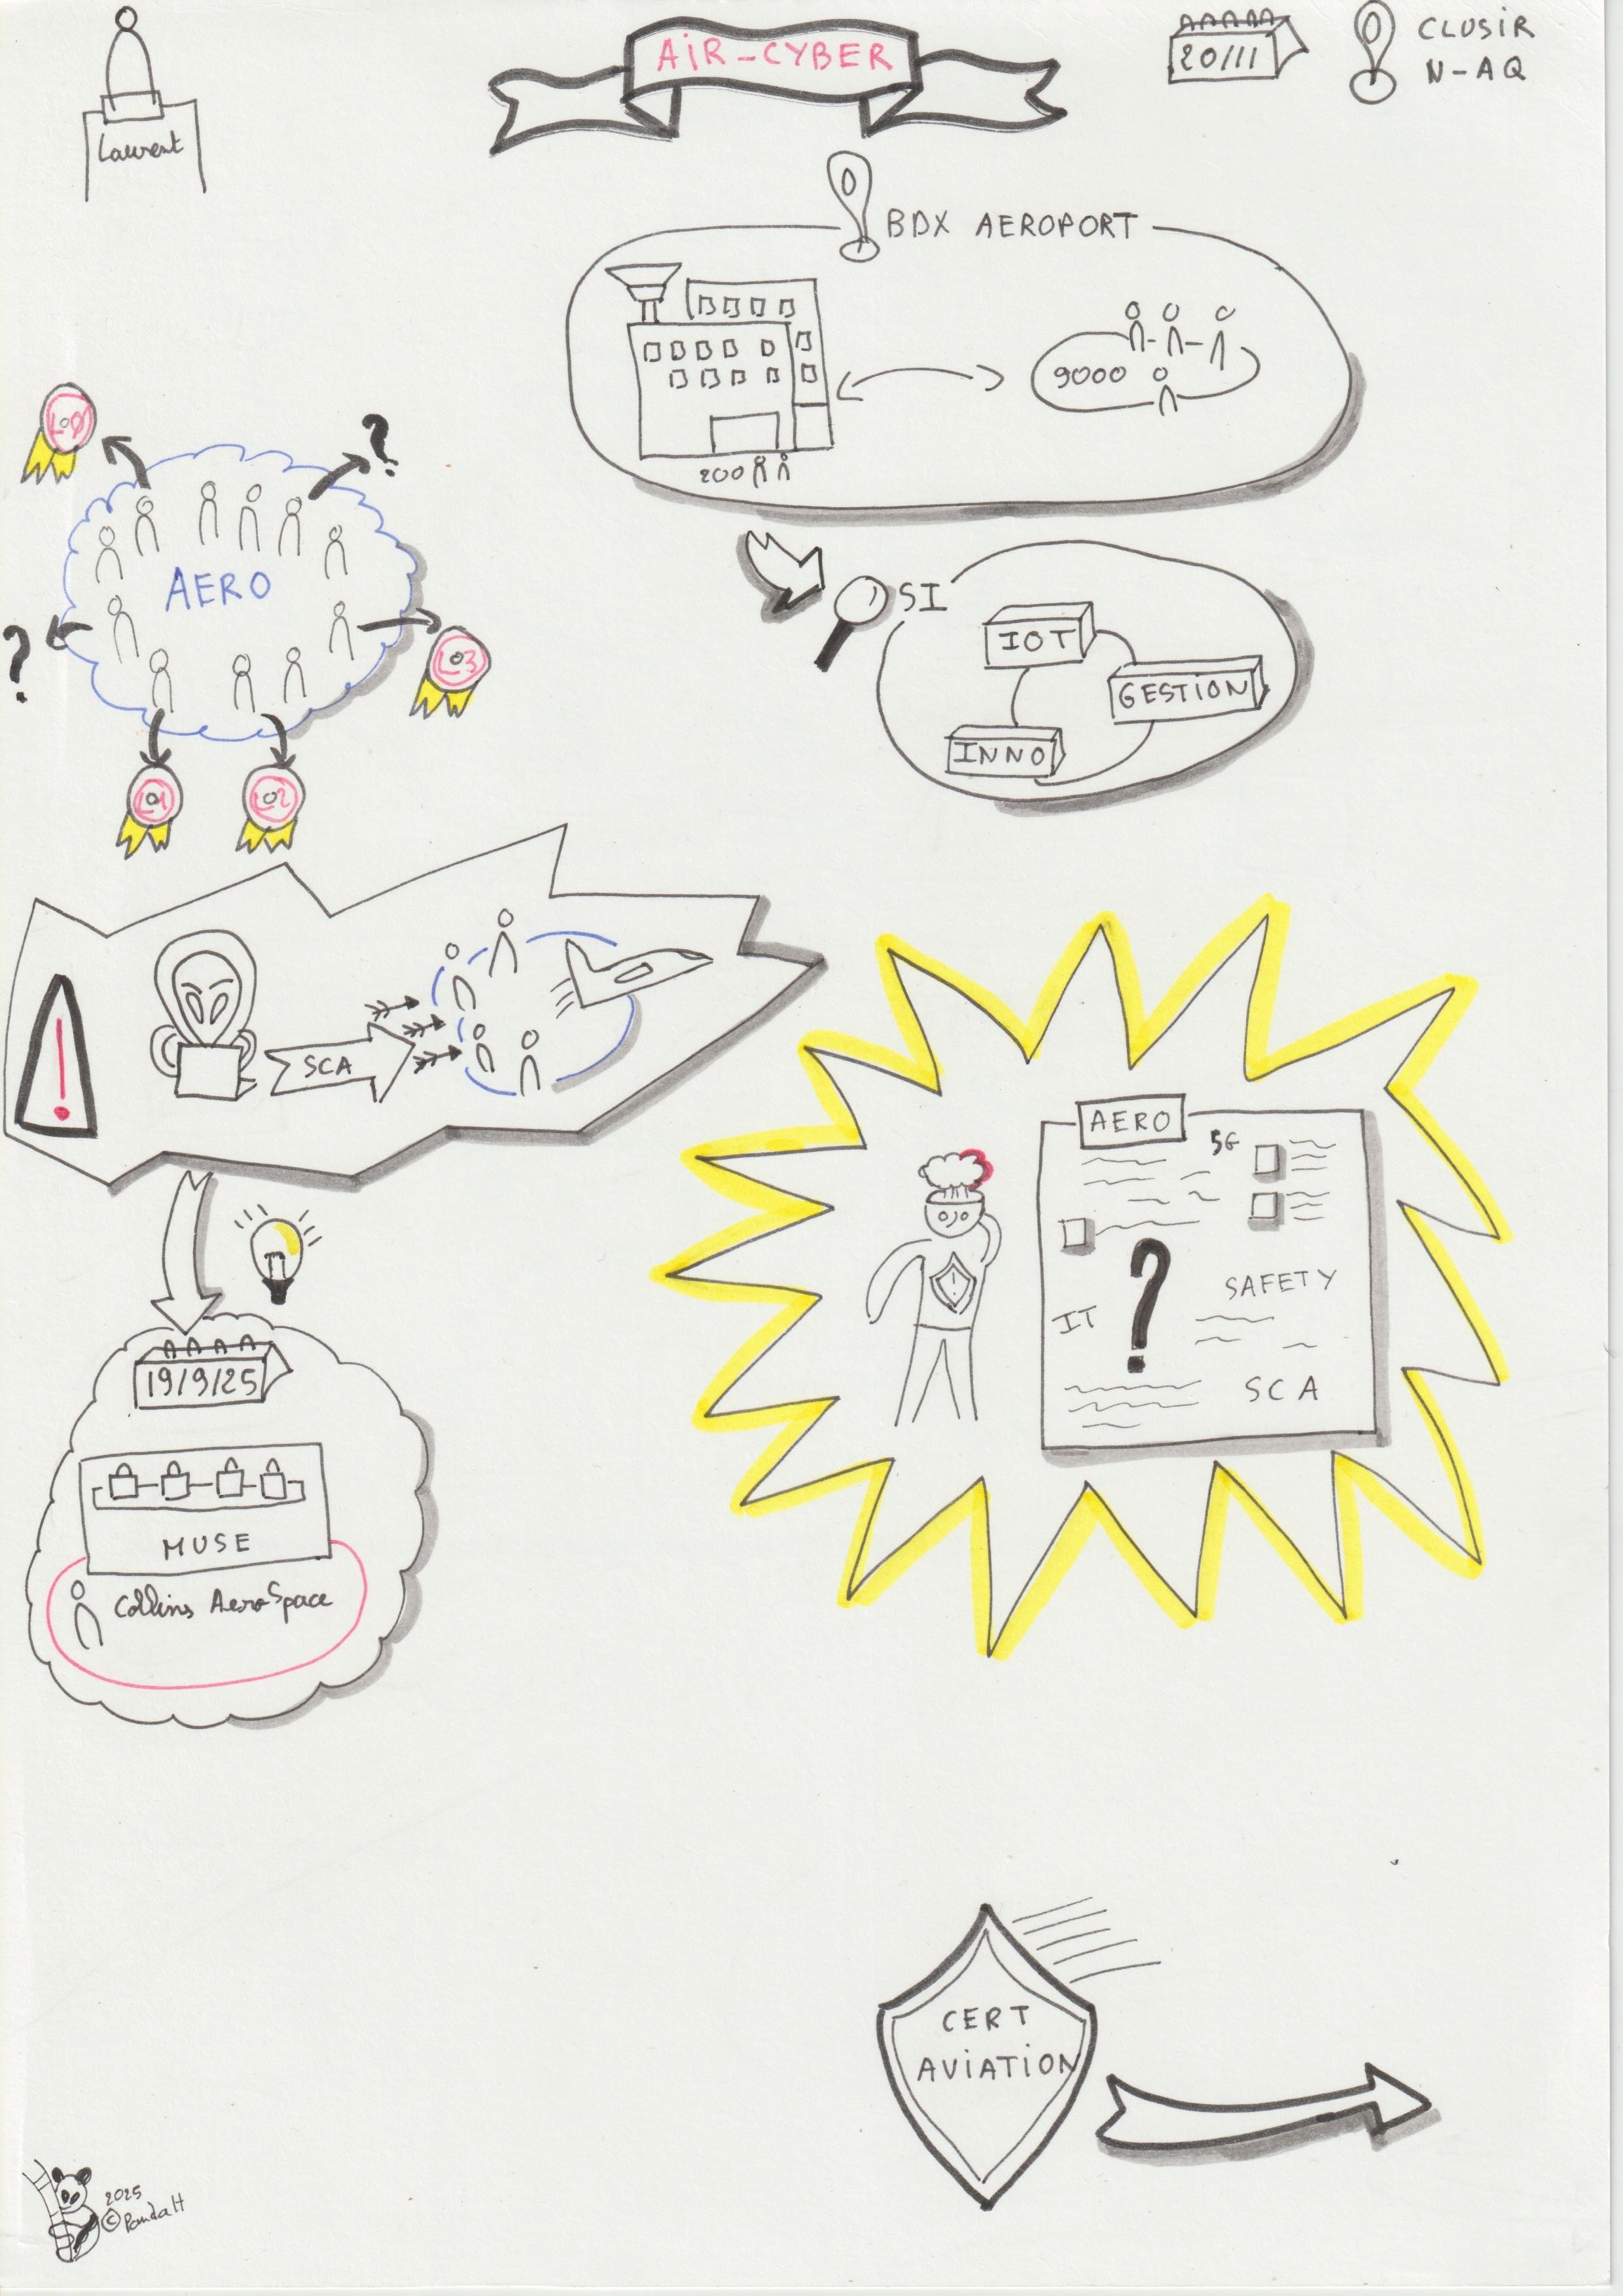 Laurent
AiR-CYBER
20/11
CLUSIR
N-AQ
BDX AEROPORT
9000
200
SI
IOT
GESTION
INNO
L0
?
AERO
?
L03
L01
L02
!
SCA
19/9/25
MUSE
Collins AeroSpace
!
AERO
5G
?
SAFETY
IT
SCA
CERT
AViATiON
2025
©PandaH